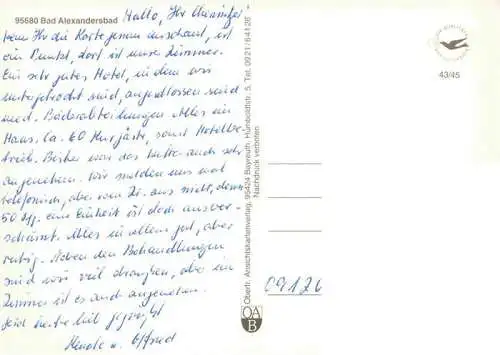 95680 Bad Alexandersbad
Hallo, Ihr
wenn Ihr die Karte genau anschaut, ist
ein Punkt, dort ist unser Zimmer.
Ein sehr gutes Hotel, in dem wir
untergebracht sind, angeschlossen sind
med. Bäderabteilungen alles im
Haus. Ca. 60 Kurgäste, sonst Hotelbe-
trieb. Bisher war das Wetter auch sehr
angenehm. Wir melden uns mal
telefonisch, aber vom Zi. aus nicht, denn
50 Pfg. eine Einheit ist doch unver-
schämt. Alles in allem gut, aber
ruhig. Neben den Behandlungen
sind wir viel draußen, aber im
Zimmer ist es auch angenehm.
Seid
u.
Oberfr. Ansichtskartenverlag, 95424 Bayreuth, Humboldtstr. 5, Tel. 0921/64126
Nachdruck verboten.
OA
B
43/45
09126